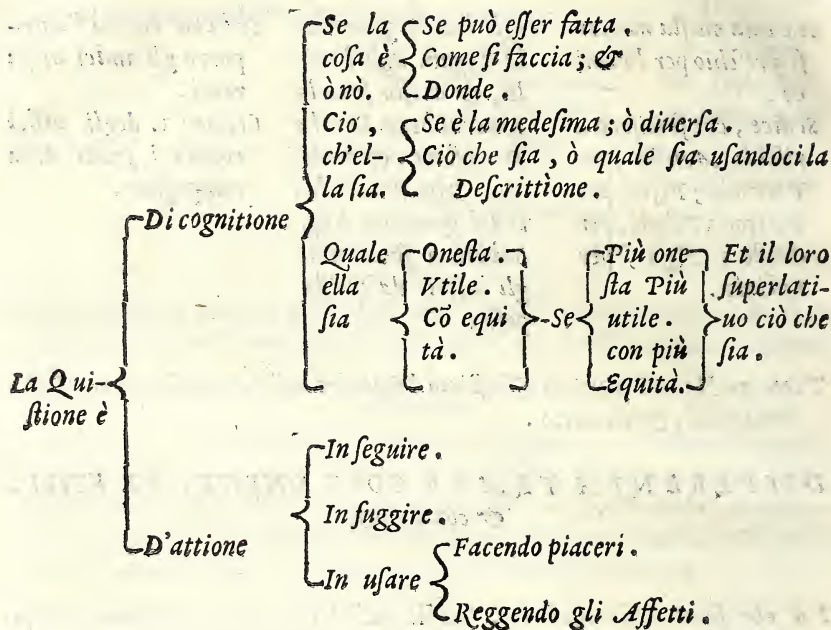 Se la
coſa è
ò nò.
Se può eſſer fatta.
Come ſi faccia; &
Donde.
Ciò,
ch'el-
la ſia.
Se è la medeſima; ò diuerſa.
Ciò che ſia, ò quale ſia uſandoci la
Deſcrittìone.
Di cognitione
Quale
ella
ſia
Oneſta.
Vtile.
Cõ equi
tà.
-Se
Più one
ſta Più
utile.
con più
Equità.
Et il loro
ſuperlati-
uo ciò che
ſia.
La Qui-
ſtione è
In ſeguire.
In fuggire.
D'attione
In uſare
Facendo piaceri.
Reggendo gli Affetti.